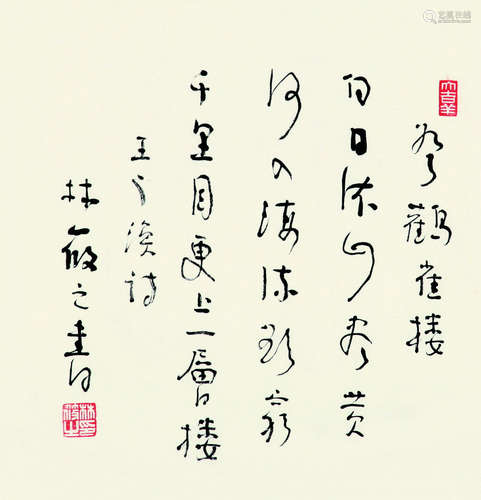 登鹳雀楼
白日依山尽黄
河入海流欲穷
千里目更上一层楼
王之涣诗
林筱之书